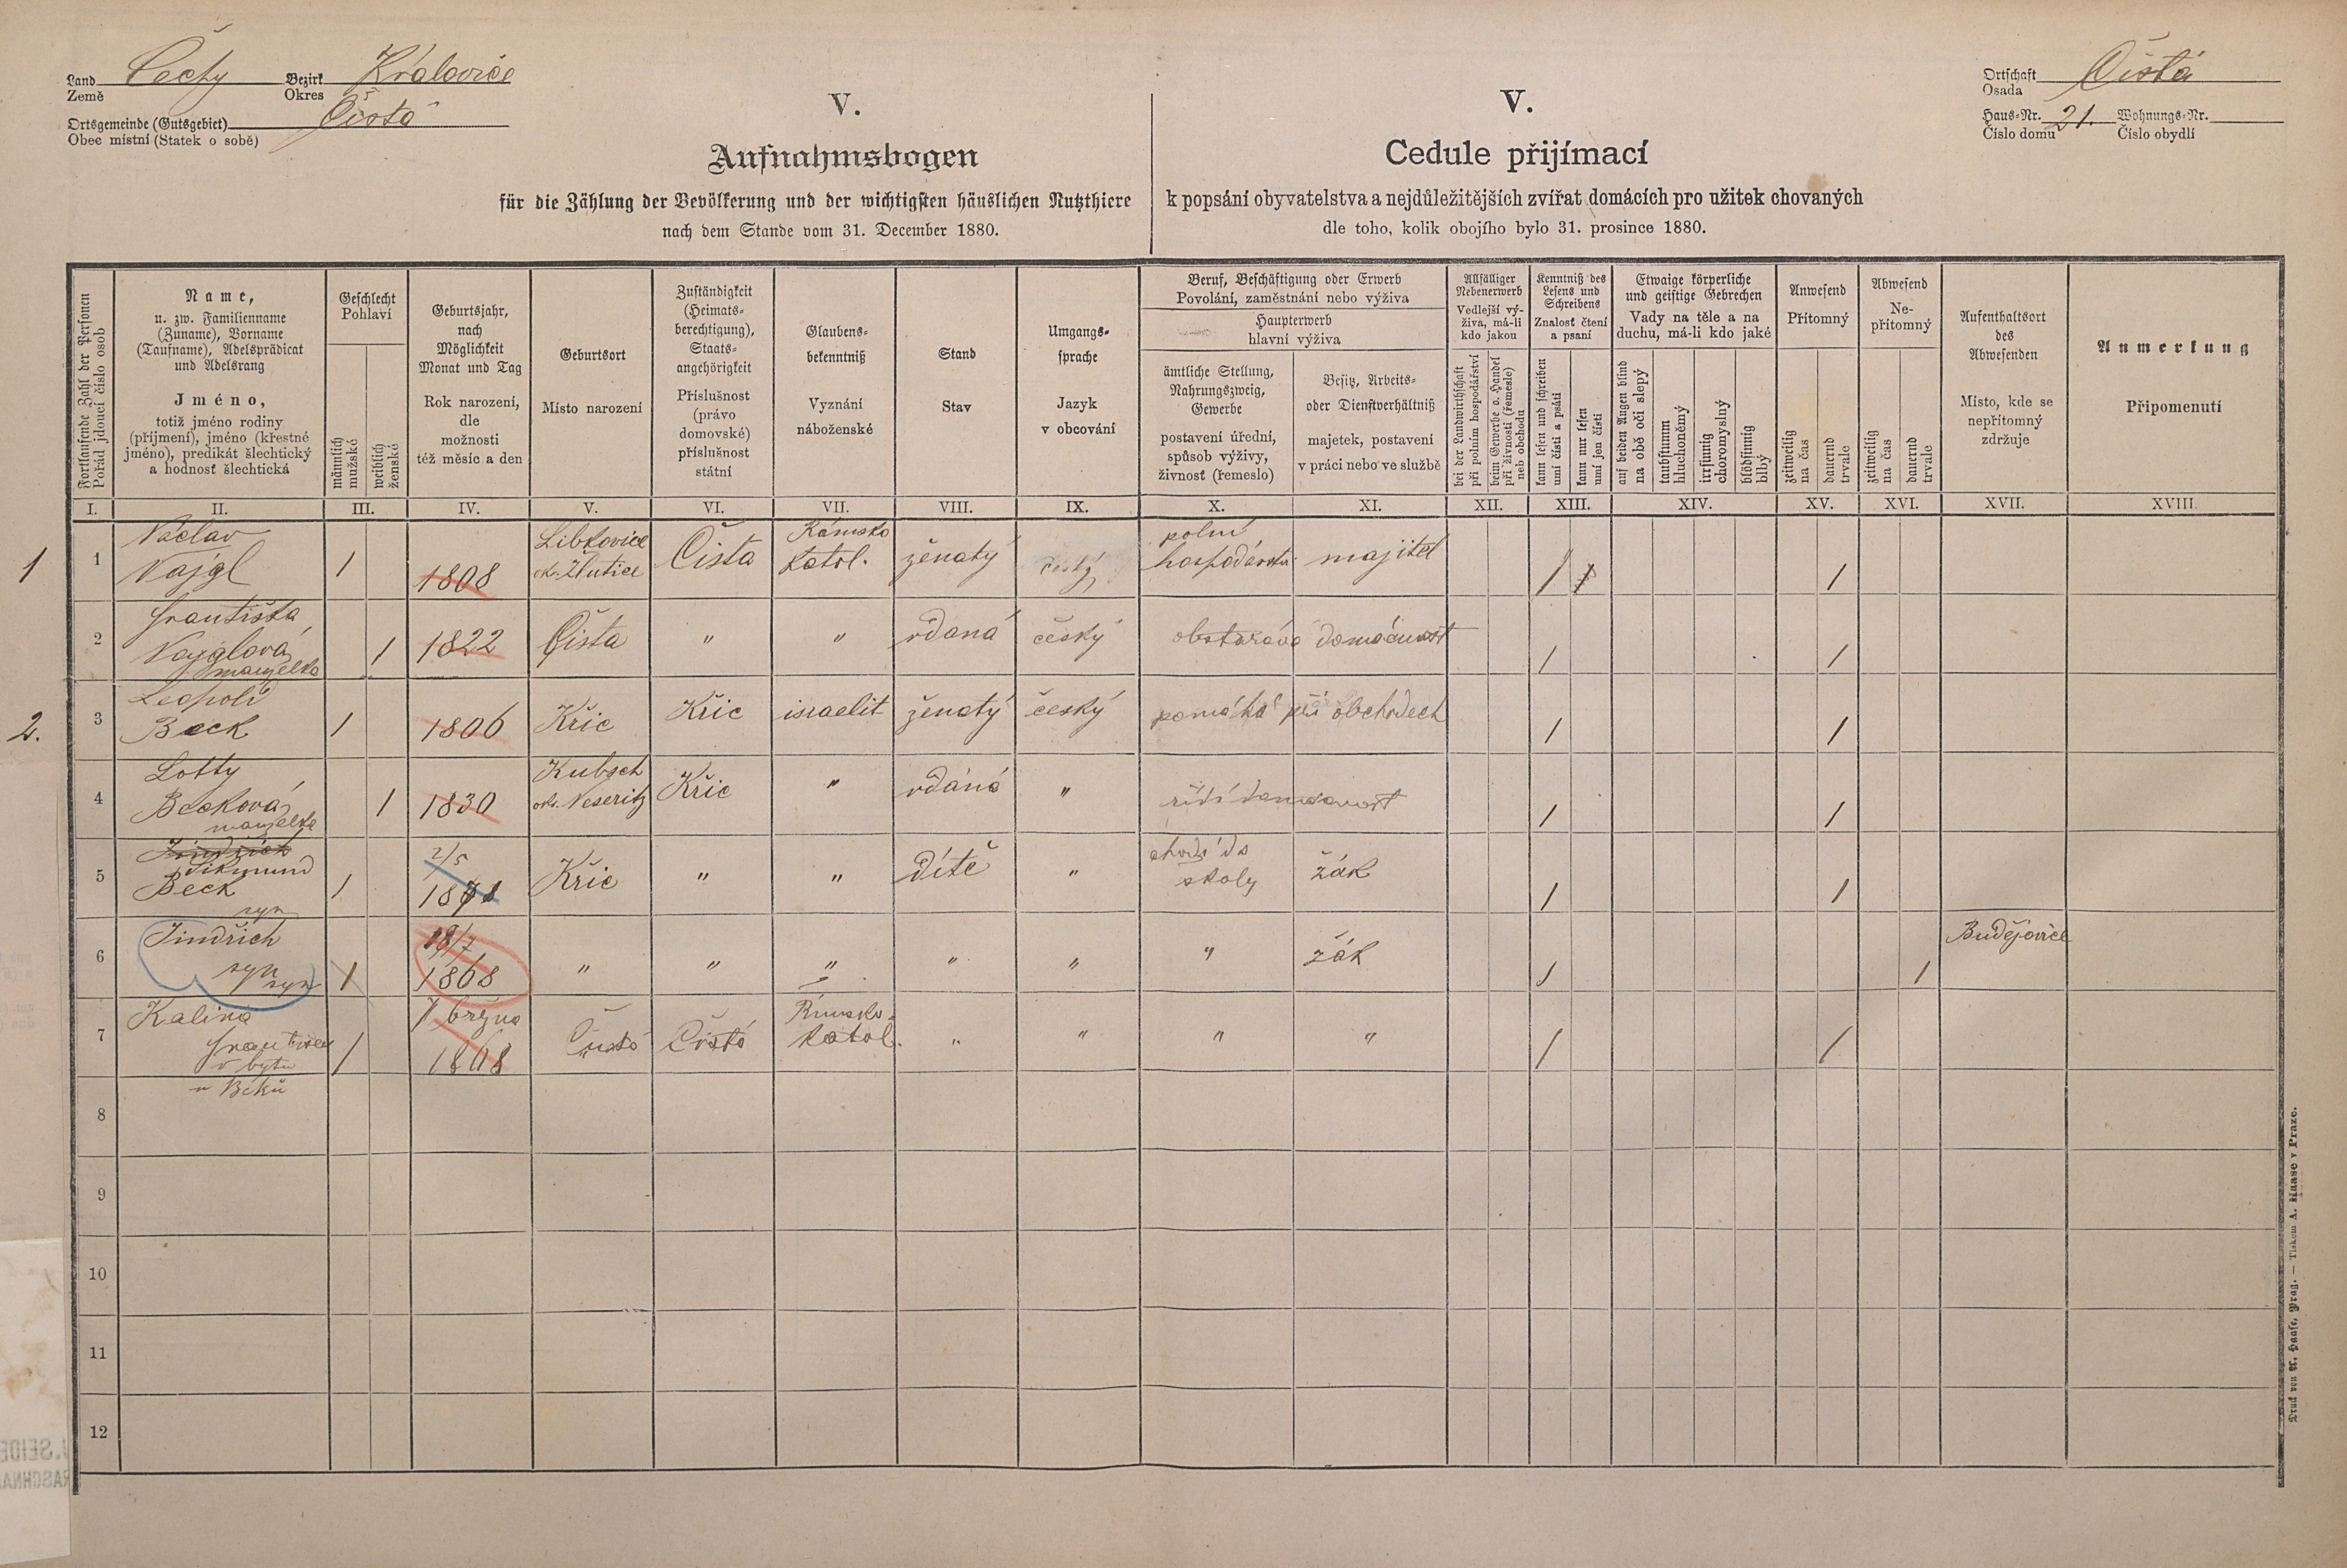 Land Čechy Bezirk Kralovice
Země Okres
Ortsgemeinde (Gutsgebiet) Čistá
Obec místní (Statek o sobě)
Ortschaft Čistá
Osada
Haus-Nr. 21. Wohnungs-Nr.
Číslo domu Číslo obydlí
V.
Aufnahmsbogen
für die Zählung der Bevölkerung und der wichtigsten häuslichen Nutzthiere
nach dem Stande vom 31. December 1880.
V.
Cedule přijímací
k popsání obyvatelstva a nejdůležitějších zvířat domácích pro užitek chovaných
dle toho, kolik obojího bylo 31. prosince 1880.
Fortlaufende Zahl der Personen
Pořád jdoucí číslo osob
Name,
u. zw. Familienname
(Zuname), Vorname
(Taufname), Adelsprädicat
und Adelsrang
Jméno,
totiž jméno rodiny
(příjmení), jméno (křestné
jméno), predikát šlechtický
a hodnosť šlechtická
Geschlecht
Pohlaví
männlich
mužské
weiblich
ženské
Geburtsjahr,
nach
Möglichkeit
Monat und Tag
Rok narození,
dle
možnosti
též měsíc a den
Geburtsort
Místo narození
Zuständigkeit
(Heimats-
berechtigung),
Staats-
angehörigkeit
Příslušnost
(právo
domovské)
příslušnost
státní
Glaubens-
bekenntniß
Vyznání
náboženské
Stand
Stav
Umgangs-
sprache
Jazyk
v obcování
Beruf, Beschäftigung oder Erwerb
Povolání, zaměstnání nebo výživa
Haupterwerb
hlavní výživa
ämtliche Stellung,
Nahrungszweig,
Gewerbe
postavení úřední,
spůsob výživy,
živnosť (řemeslo)
Besitz, Arbeits-
oder Dienstverhältniß
majetek, postavení
v práci nebo ve službě
Allfälliger
Nebenerwerb
Vedlejší vý-
živa, má-li
kdo jakou
bei der Landwirthschaft
při polním hospodářství
beim Gewerbe o. Handel
při živnosti (řemesle)
neb obchodu
Kenntniß des
Lesens und
Schreibens
Znalosť čtení
a psaní
kann lesen und schreiben
umí čísti a psáti
kann nur lesen
umí jen čísti
Etwaige körperliche
und geistige Gebrechen
Vady na těle a na
duchu, má-li kdo jaké
auf beiden Augen blind
na obě oči slepý
taubstumm
hluchoněmý
irrsinnig
choromyslný
blödsinnig
blbý
Anwesend
Přítomný
zeitweilig
na čas
dauernd
trvale
Abwesend
Ne-
přítomný
zeitweilig
na čas
dauernd
trvale
Aufenthaltsort
des
Abwesenden
Místo, kde se
nepřítomný
zdržuje
Anmerkung
Připomenutí
I. II. III. IV. V. VI. VII. VIII. IX. X. XI. XII. XIII. XIV. XV. XVI. XVII. XVIII.
Václav Libkovice Římsko polní
1 1 Vajgl 1 1808 ok. Žlutice Čista katol. ženatý český majitel / /
Františka
2 Vajglová 1 1822 Čista " " vdaná český obstarává domácnost / /
manželka
Leopold
2. 3 Beck 1 1806 Křic Křic israelit ženatý český pomáhá při obchodech / /
Lotty Kubsch
4 Becková 1 1830 ok. Neseritz Křic " vdáná " řídí domácnost / /
manželka
Jindřich 2/5 chodí do
Sikmund
5 Beck 1 1871 Křic " " dítě " školy žák / /
syn
Jindřich 18/7 Budějovice
6 syn 1 1868 " " " " " " žák / /
syn
Kalina 7 března Římsko-
7 František 1 1868 Čistá Čistá katol. " " " " / /
v bytu
u Béků
8
9
10
11
12
Druck von A. Haase, Prag. — Tiskem A. Haase v Praze.